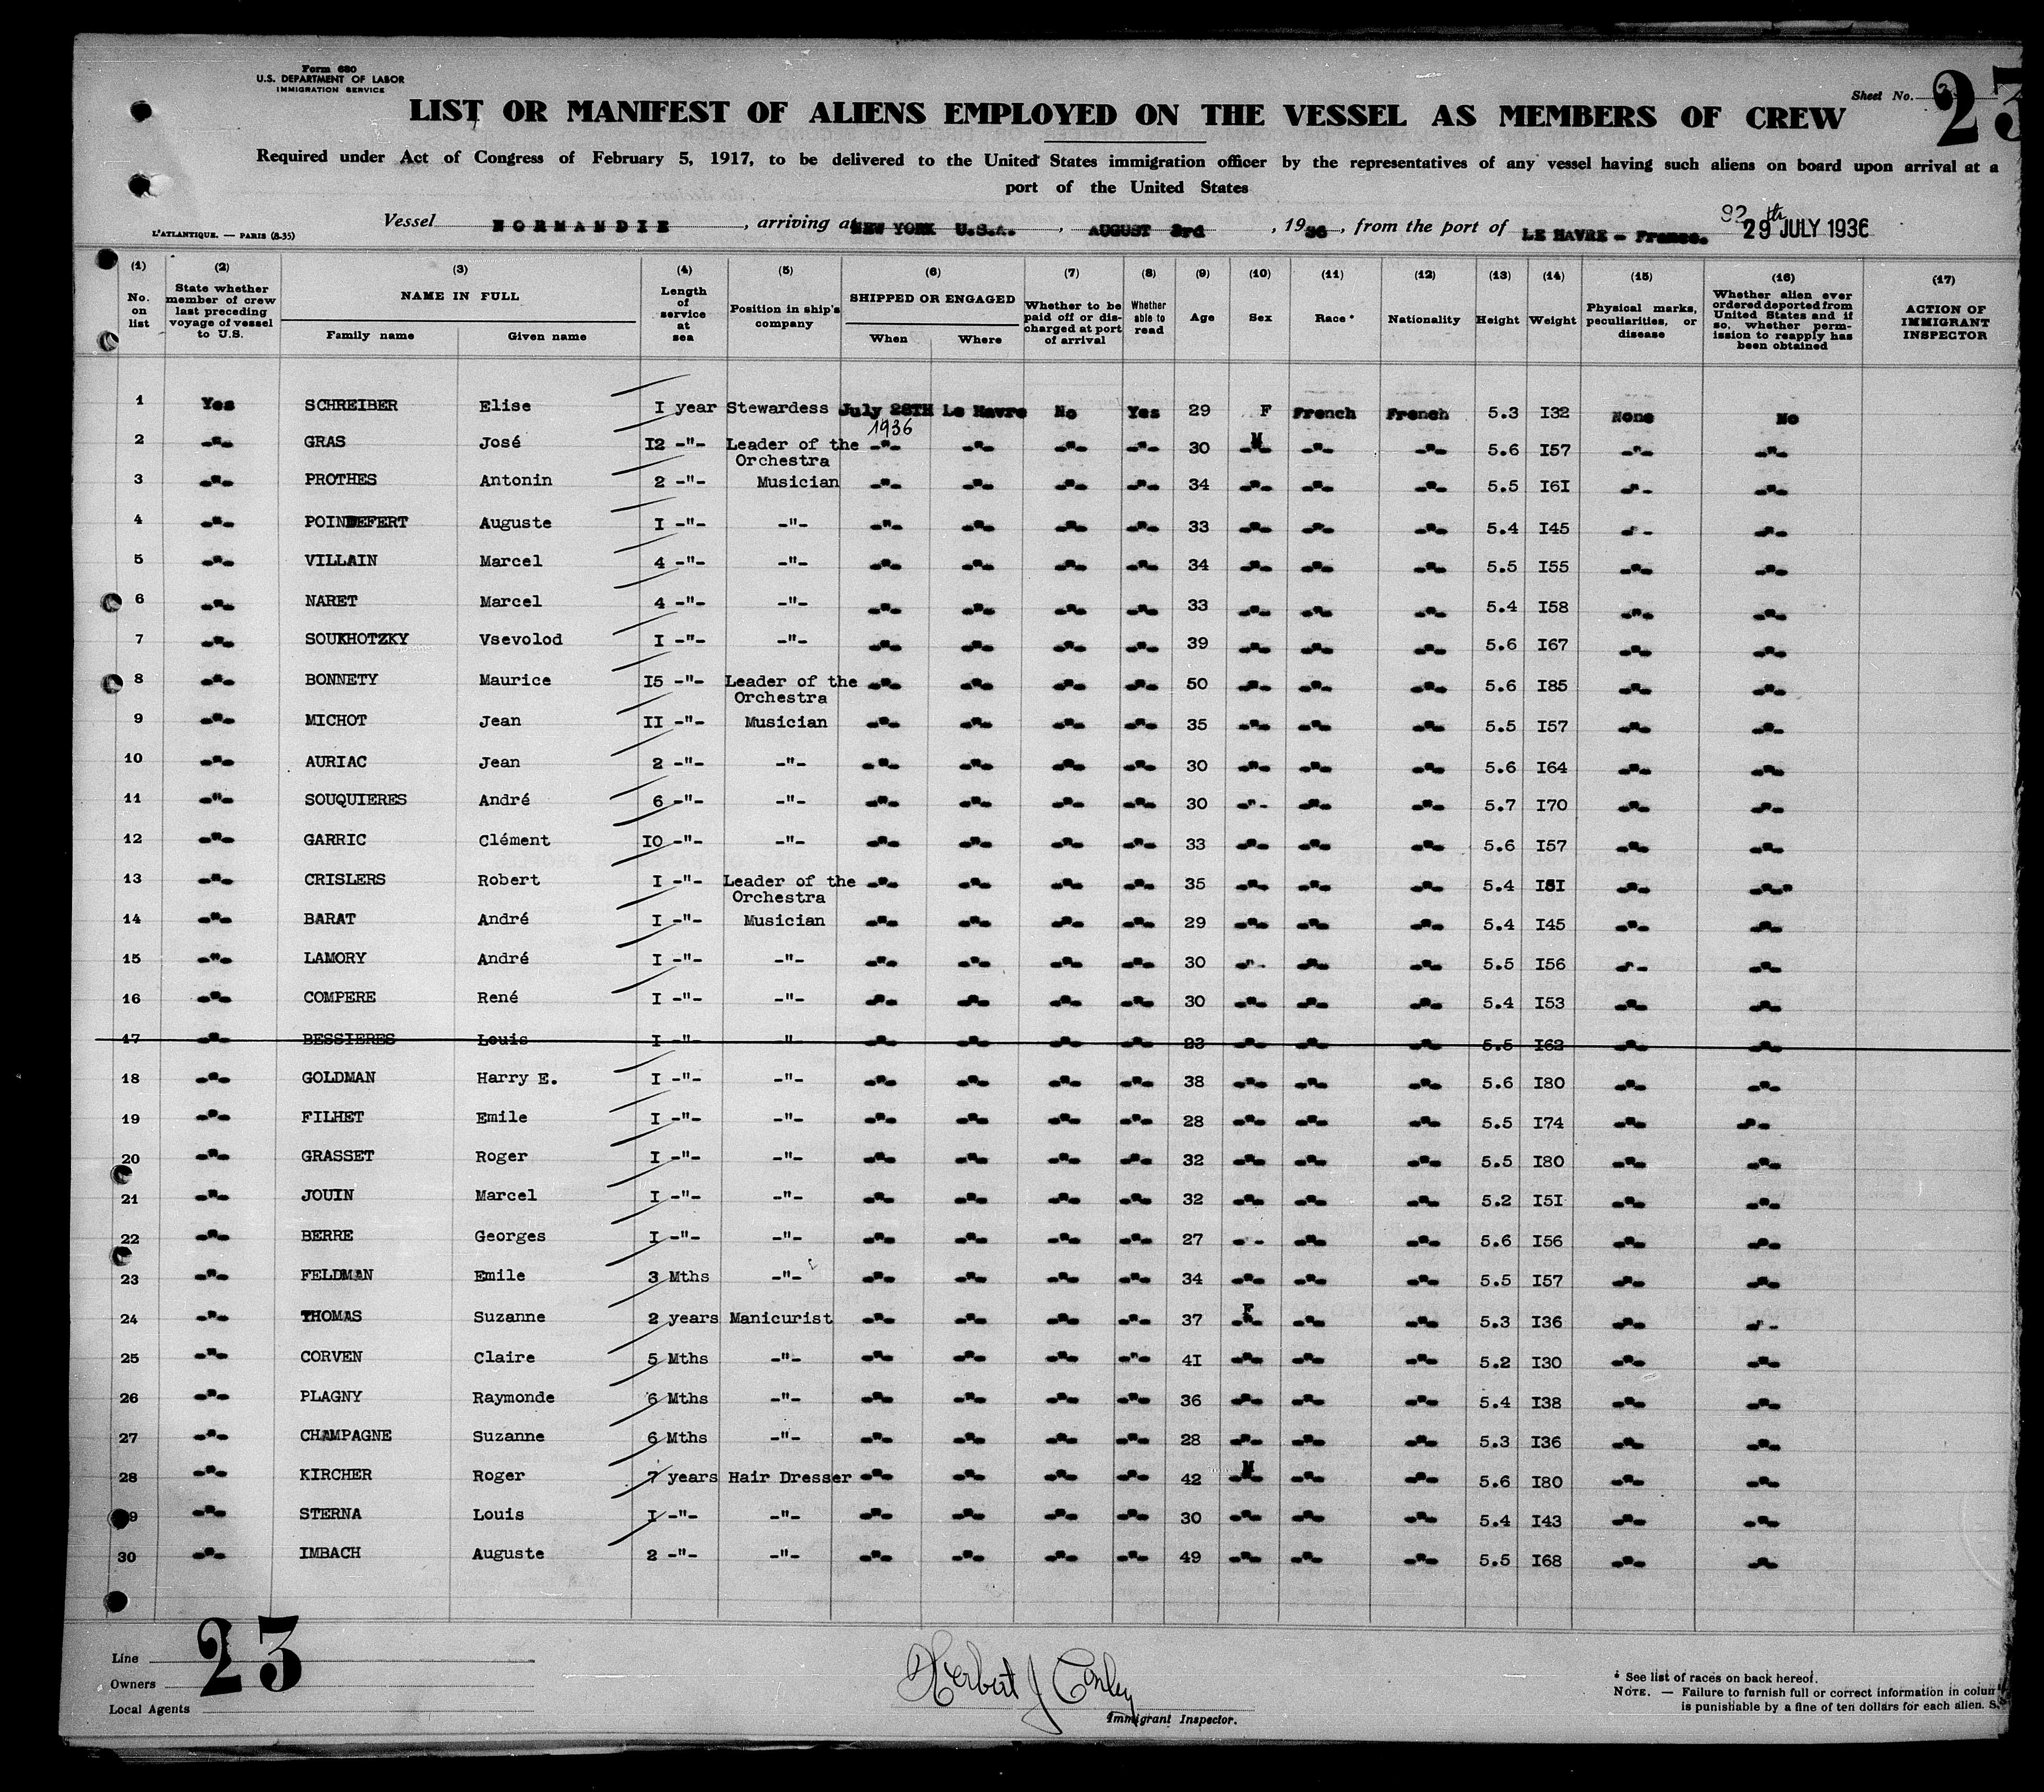 Form 680
U.S. DEPARTMENT OF LABOR
IMMIGRATION SERVICE
Sheet No. 23
LIST OR MANIFEST OF ALIENS EMPLOYED ON THE VESSEL AS MEMBERS OF CREW
Required under Act of Congress of February 5, 1917, to be delivered to the United States immigration officer by the representatives of any vessel having such aliens on board upon arrival at a
port of the United States
L'ATLANTIQUE. — PARIS (8-35)
Vessel NORMANDIE, arriving at NEW YORK U.S.A., AUGUST 3rd, 1936, from the port of LE HAVRE - France. 29th JULY 1936
(1) (2) (3) (4) (5) (6) (7) (8) (9) (10) (11) (12) (13) (14) (15) (16) (17)
No. on list
State whether member of crew last preceding voyage of vessel to U.S.
NAME IN FULL
Family name Given name
Length of service at sea
Position in ship's company
SHIPPED OR ENGAGED
When Where
Whether to be paid off or discharged at port of arrival
Whether able to read
Age
Sex
Race *
Nationality
Height
Weight
Physical marks, peculiarities, or disease
Whether alien ever ordered deported from United States and if so, whether permission to reapply has been obtained
ACTION OF IMMIGRANT INSPECTOR
1 Yes SCHREIBER Elise I year Stewardess July 28TH 1936 Le Havre No Yes 29 F French French 5.3 I32 None No
2 -"- GRAS José I2 -"- Leader of the Orchestra -"- -"- -"- -"- 30 M -"- -"- 5.6 I57 -"- -"-
3 -"- PROTHES Antonin 2 -"- Musician -"- -"- -"- -"- 34 -"- -"- -"- 5.5 I6I -"- -"-
4 -"- POINDEFERT Auguste I -"- -"- -"- -"- -"- -"- 33 -"- -"- -"- 5.4 I45 -"- -"-
5 -"- VILLAIN Marcel 4 -"- -"- -"- -"- -"- -"- 34 -"- -"- -"- 5.5 I55 -"- -"-
6 -"- NARET Marcel 4 -"- -"- -"- -"- -"- -"- 33 -"- -"- -"- 5.4 I58 -"- -"-
7 -"- SOUKHOTZKY Vsevolod I -"- -"- -"- -"- -"- -"- 39 -"- -"- -"- 5.6 I67 -"- -"-
8 -"- BONNETY Maurice I5 -"- Leader of the Orchestra -"- -"- -"- -"- 50 -"- -"- -"- 5.6 I85 -"- -"-
9 -"- MICHOT Jean II -"- Musician -"- -"- -"- -"- 35 -"- -"- -"- 5.5 I57 -"- -"-
10 -"- AURIAC Jean 2 -"- -"- -"- -"- -"- -"- 30 -"- -"- -"- 5.6 I64 -"- -"-
11 -"- SOUQUIERES André 6 -"- -"- -"- -"- -"- -"- 30 -"- -"- -"- 5.7 I70 -"- -"-
12 -"- GARRIC Clément IO -"- -"- -"- -"- -"- -"- 33 -"- -"- -"- 5.6 I57 -"- -"-
13 -"- CRISLERS Robert I -"- Leader of the Orchestra -"- -"- -"- -"- 35 -"- -"- -"- 5.4 -"- -"-
14 -"- BARAT André I -"- Musician -"- -"- -"- -"- 29 -"- -"- -"- 5.4 I45 -"- -"-
15 -"- LAMORY André I -"- -"- -"- -"- -"- -"- 30 -"- -"- -"- 5.5 I56 -"- -"-
16 -"- COMPERE René I -"- -"- -"- -"- -"- -"- 30 -"- -"- -"- 5.4 I53 -"- -"-
17 -"- BESSIERES Louis I -"- " -"- -"- -"- -"- 23 -"- -"- -"- 5.5 I62 -"- -"-
18 -"- GOLDMAN Harry E. I -"- -"- -"- -"- -"- -"- 38 -"- -"- -"- 5.6 I80 -"- -"-
19 -"- FILHET Emile I -"- -"- -"- -"- -"- -"- 28 -"- -"- -"- 5.5 I74 -"- -"-
20 -"- GRASSET Roger I -"- -"- -"- -"- -"- -"- 32 -"- -"- -"- 5.5 I80 -"- -"-
21 -"- JOUIN Marcel I -"- -"- -"- -"- -"- -"- 32 -"- -"- -"- 5.2 I5I -"- -"-
22 -"- BERRE Georges I -"- -"- -"- -"- -"- -"- 27 -"- -"- -"- 5.6 I56 -"- -"-
23 -"- FELDMAN Emile 3 Mths -"- -"- -"- -"- -"- 34 -"- -"- -"- 5.5 I57 -"- -"-
24 -"- THOMAS Suzanne 2 years Manicurist -"- -"- -"- -"- 37 F -"- -"- 5.3 I36 -"- -"-
25 -"- CORVEN Claire 5 Mths -"- -"- -"- -"- -"- 4I -"- -"- -"- 5.2 I30 -"- -"-
26 -"- PLAGNY Raymonde 6 Mths -"- -"- -"- -"- -"- 36 -"- -"- -"- 5.4 I38 -"- -"-
27 -"- CHAMPAGNE Suzanne 6 Mths -"- -"- -"- -"- -"- 28 -"- -"- -"- 5.3 I36 -"- -"-
28 -"- KIRCHER Roger 7 years Hair Dresser -"- -"- -"- -"- 42 M -"- -"- 5.6 I80 -"- -"-
29 -"- STERNA Louis I -"- -"- -"- -"- -"- -"- 30 -"- -"- -"- 5.4 I43 -"- -"-
30 -"- IMBACH Auguste 2 -"- -"- -"- -"- -"- -"- 49 -"- -"- -"- 5.5 I68 -"- -"-
23
Line
Owners
Local Agents
Herbert J Conley
Immigrant Inspector.
* See list of races on back hereof.
NOTE. — Failure to furnish full or correct information in colum
is punishable by a fine of ten dollars for each alien. S